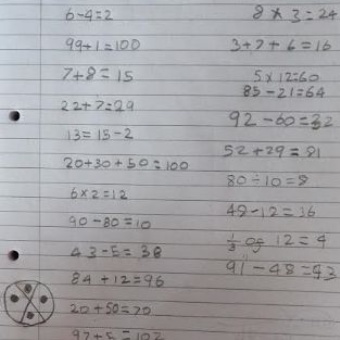 6-4=2
99+1=100
7+8=15
22+7=29
13=15-2
20+30+50=100
6×2=12
90-80=10
43-5=38
84+12=96
20+50=70
97+5=102
8×3=24
3+7+6=16
5×12=60
85-21=64
92-60=32
52+29=81
80÷10=8
48-12=36
1/3 of 12=4
91-48=43